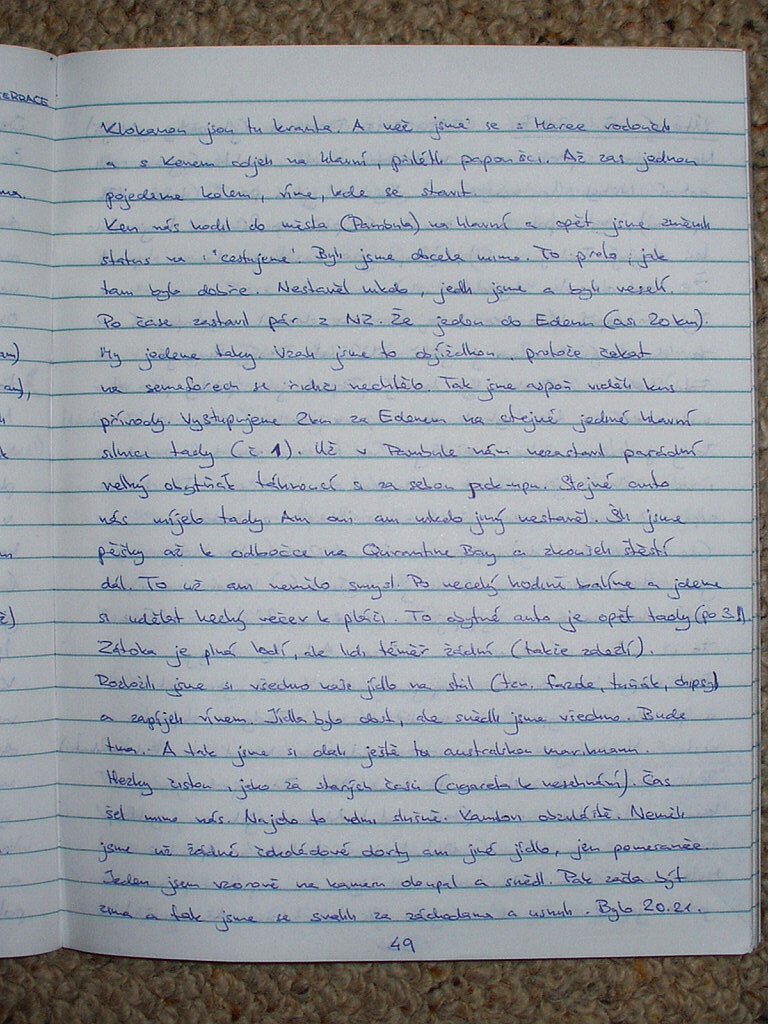 TERRACE
Klokanon jsou tu kranta. A než jsme se s Maree rodouch
a s Kenem odjeli na hlavní, přilétli papoušci. Až zas jednou
pojedeme kolem, víme, kde se stavit.
Ken nás hodil do města (Pambula) na hlavní a opět jsme změnili
status na "cestujeme". Byli jsme docela mimo. To proto, jak
tam bylo dobře. Nestavěl nikdo, jedli jsme a byli veselí.
Po čase zastavil pár z NZ. Že jedou do Edenu (asi 20 km).
My jedeme taky. Vzali jsme to objížďkou, protože čekat
na semaforech se řidiči nechtělo. Tak jsme aspoň viděli kus
přírody. Vystupujeme 2km za Edenem na stejné jediné hlavní
silnici tady (č. 1). Už v Pambule nám nezastavil parádní
velký obytňák táhnoucí si za sebou pick-upu. Stejné auto
nás míjelo tady. Ani oni ani nikdo jiný nestavěl. Šli jsme
pěšky až k odbočce na Quirantine Bay a zkoušeli štěstí
dál. To už ani nemělo smysl. Po necelý hodině balíme a jdeme
si udělat hezký večer k pláži. To obytné auto je opět tady (po 3.)
Zátoka je plná lodí, ale lidi téměř žádní (takže zdeží).
Rozložili jsme si všechno naše jídlo na stůl (ten. fazole, tuňák, chipsy)
a zapíjeli vínem. Jídla bylo dost, ale snědli jsme všechno. Bude
tma. A tak jsme si dali ještě tu australskou marihuanu.
Hezky čistou, jako za starých časů (cigareta k nesehnání). Čas
šel mimo nás. Najelo to velmi slušně. Kamton obzvláště. Neměli
jsme už žádné čokoládové dorty ani jiné jídlo, jen pomeranče.
Jeden jsem vzorově na kameni oloupal a snědl. Pak začla být
zima a tak jsme se svalili za záchodama a usnuli. Bylo 20.21.
49